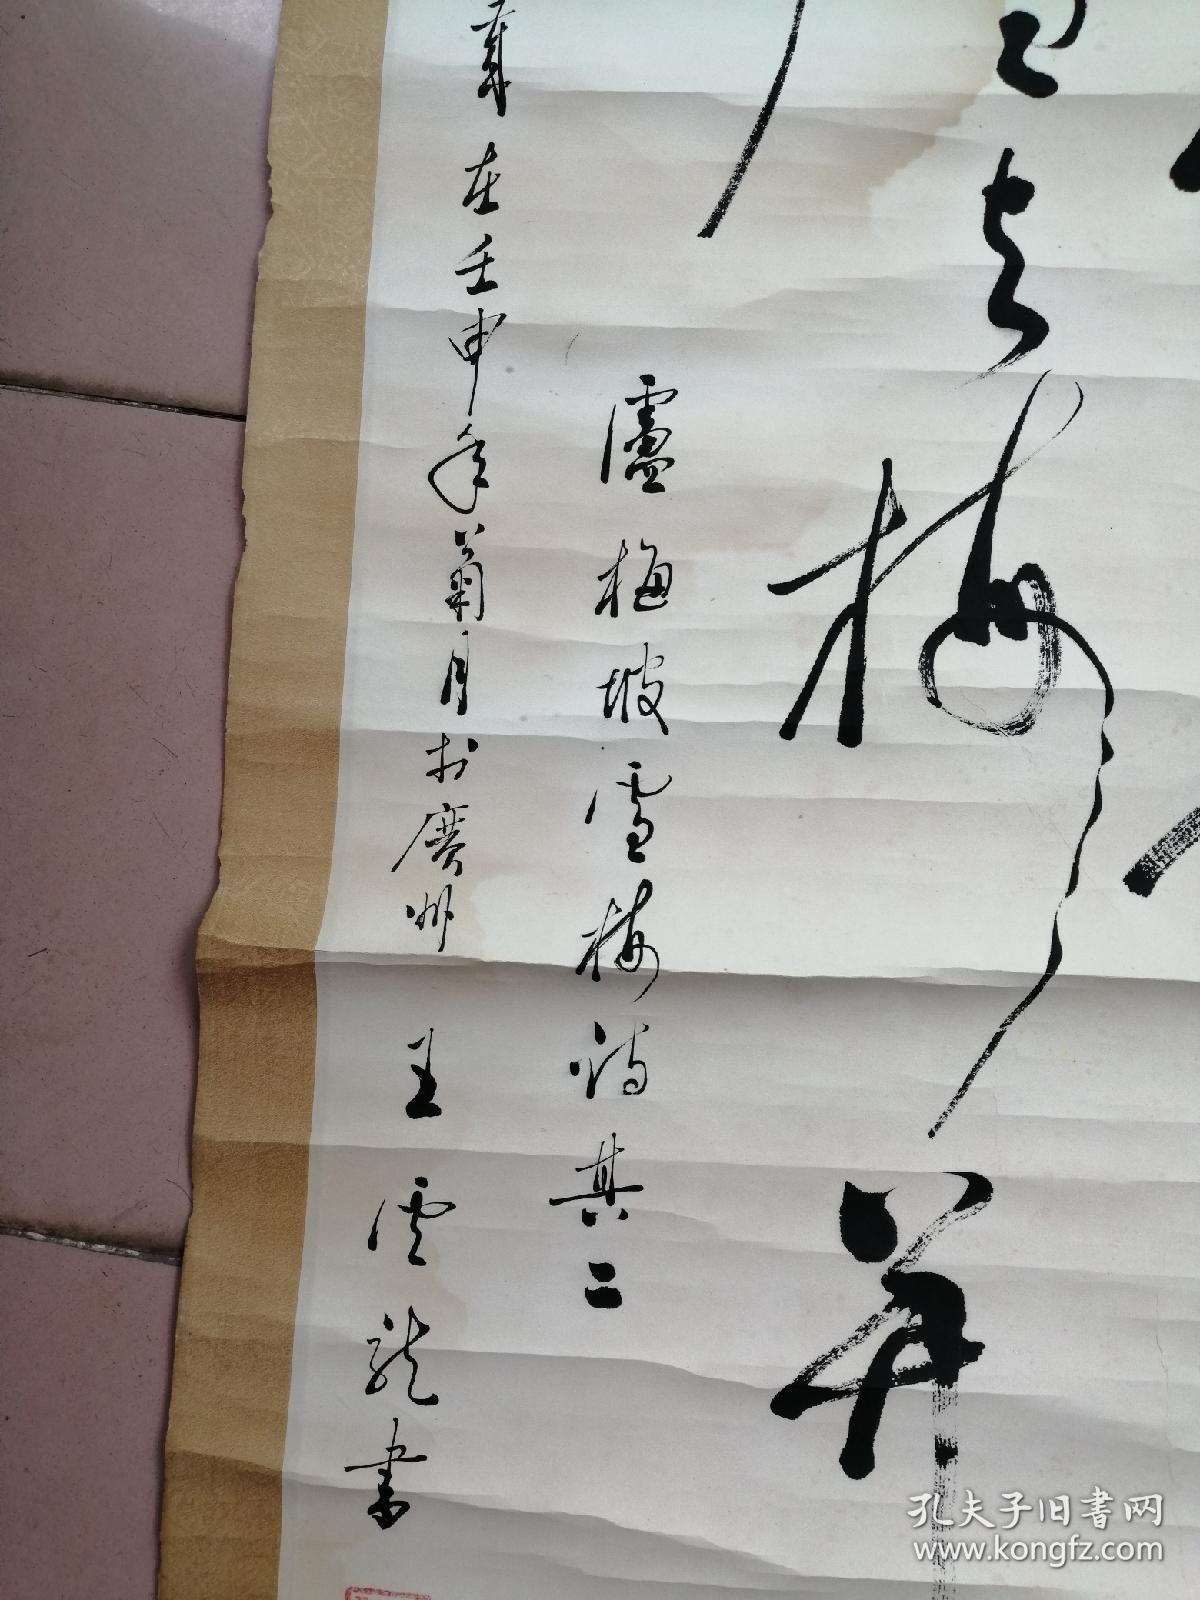 与梅并
盧梅坡雪梅詩其二
歲在壬申年菊月於廣州 王雲龍書
孔夫子旧书网
www.kongfz.com